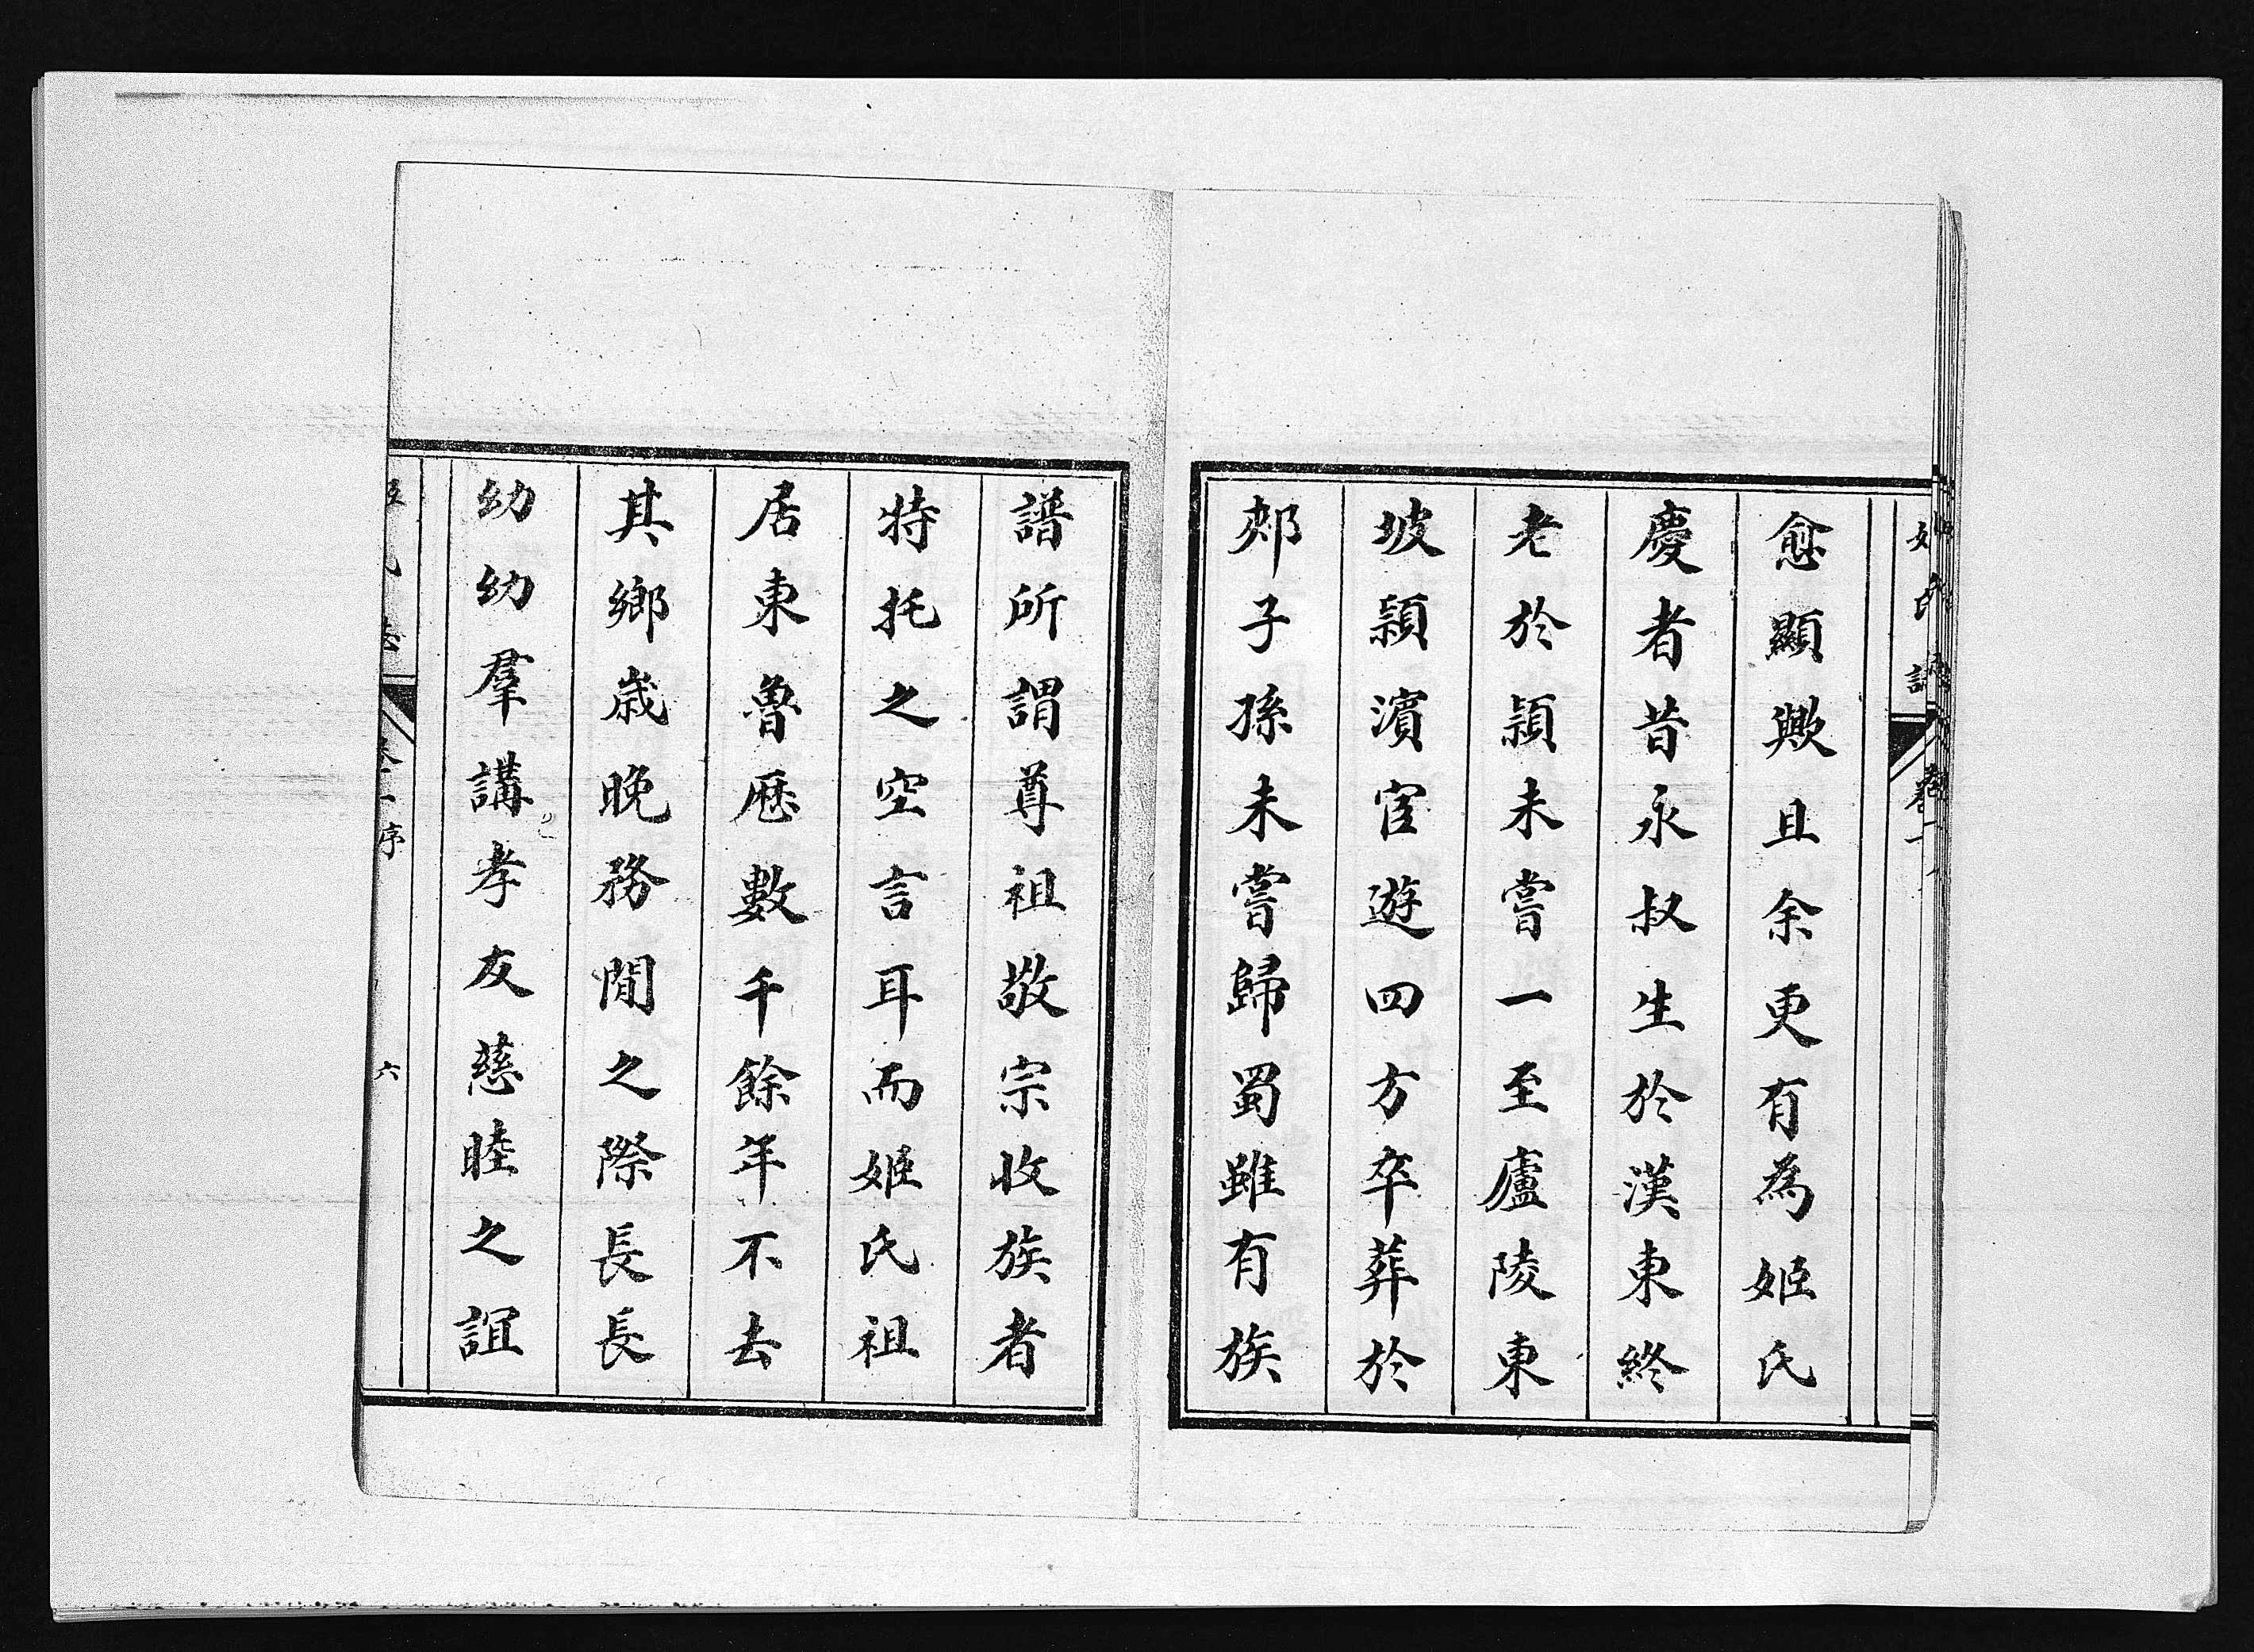 姬氏誌 卷一
愈顯歟且余更有為姬氏
慶者昔永叔生於漢東終
老於潁未嘗一至廬陵東
坡潁濱宦遊四方卒葬於
郟子孫未嘗歸蜀雖有族
譜所謂尊祖敬宗收族者
特托之空言耳而姬氏祖
居東魯歷數千餘年不去
其鄉歲晚務閒之際長長
幼幼羣講孝友慈睦之誼
卷一序 六